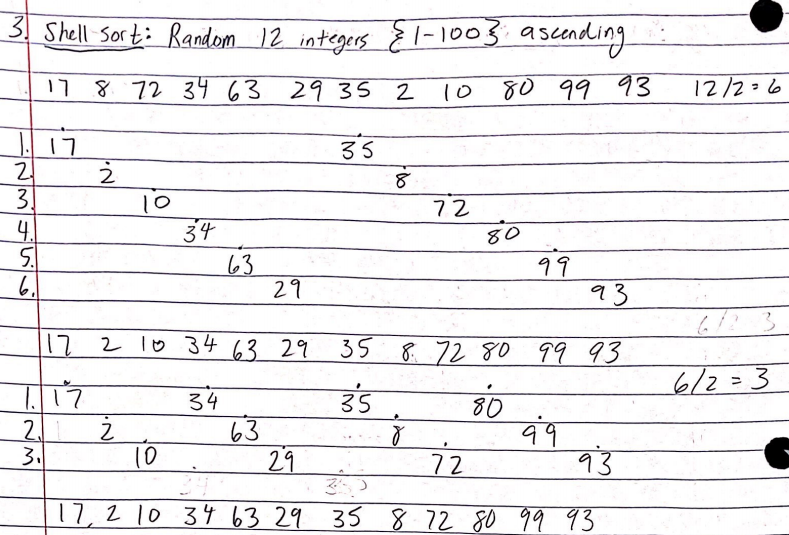 3. Shell Sort: Random 12 integers {1-100} ascending
17 8 72 34 63 29 35 2 10 80 99 93 12/2=6
1. 17 35
2. 2 8
3. 10 72
4. 34 80
5. 63 99
6. 29 93
17 2 10 34 63 29 35 8 72 80 99 93
6/2 = 3
1. 17 34 35 80
2. 2 63 8 99
3. 10 29 72 93
17, 2 10 34 63 29 35 8 72 80 99 93